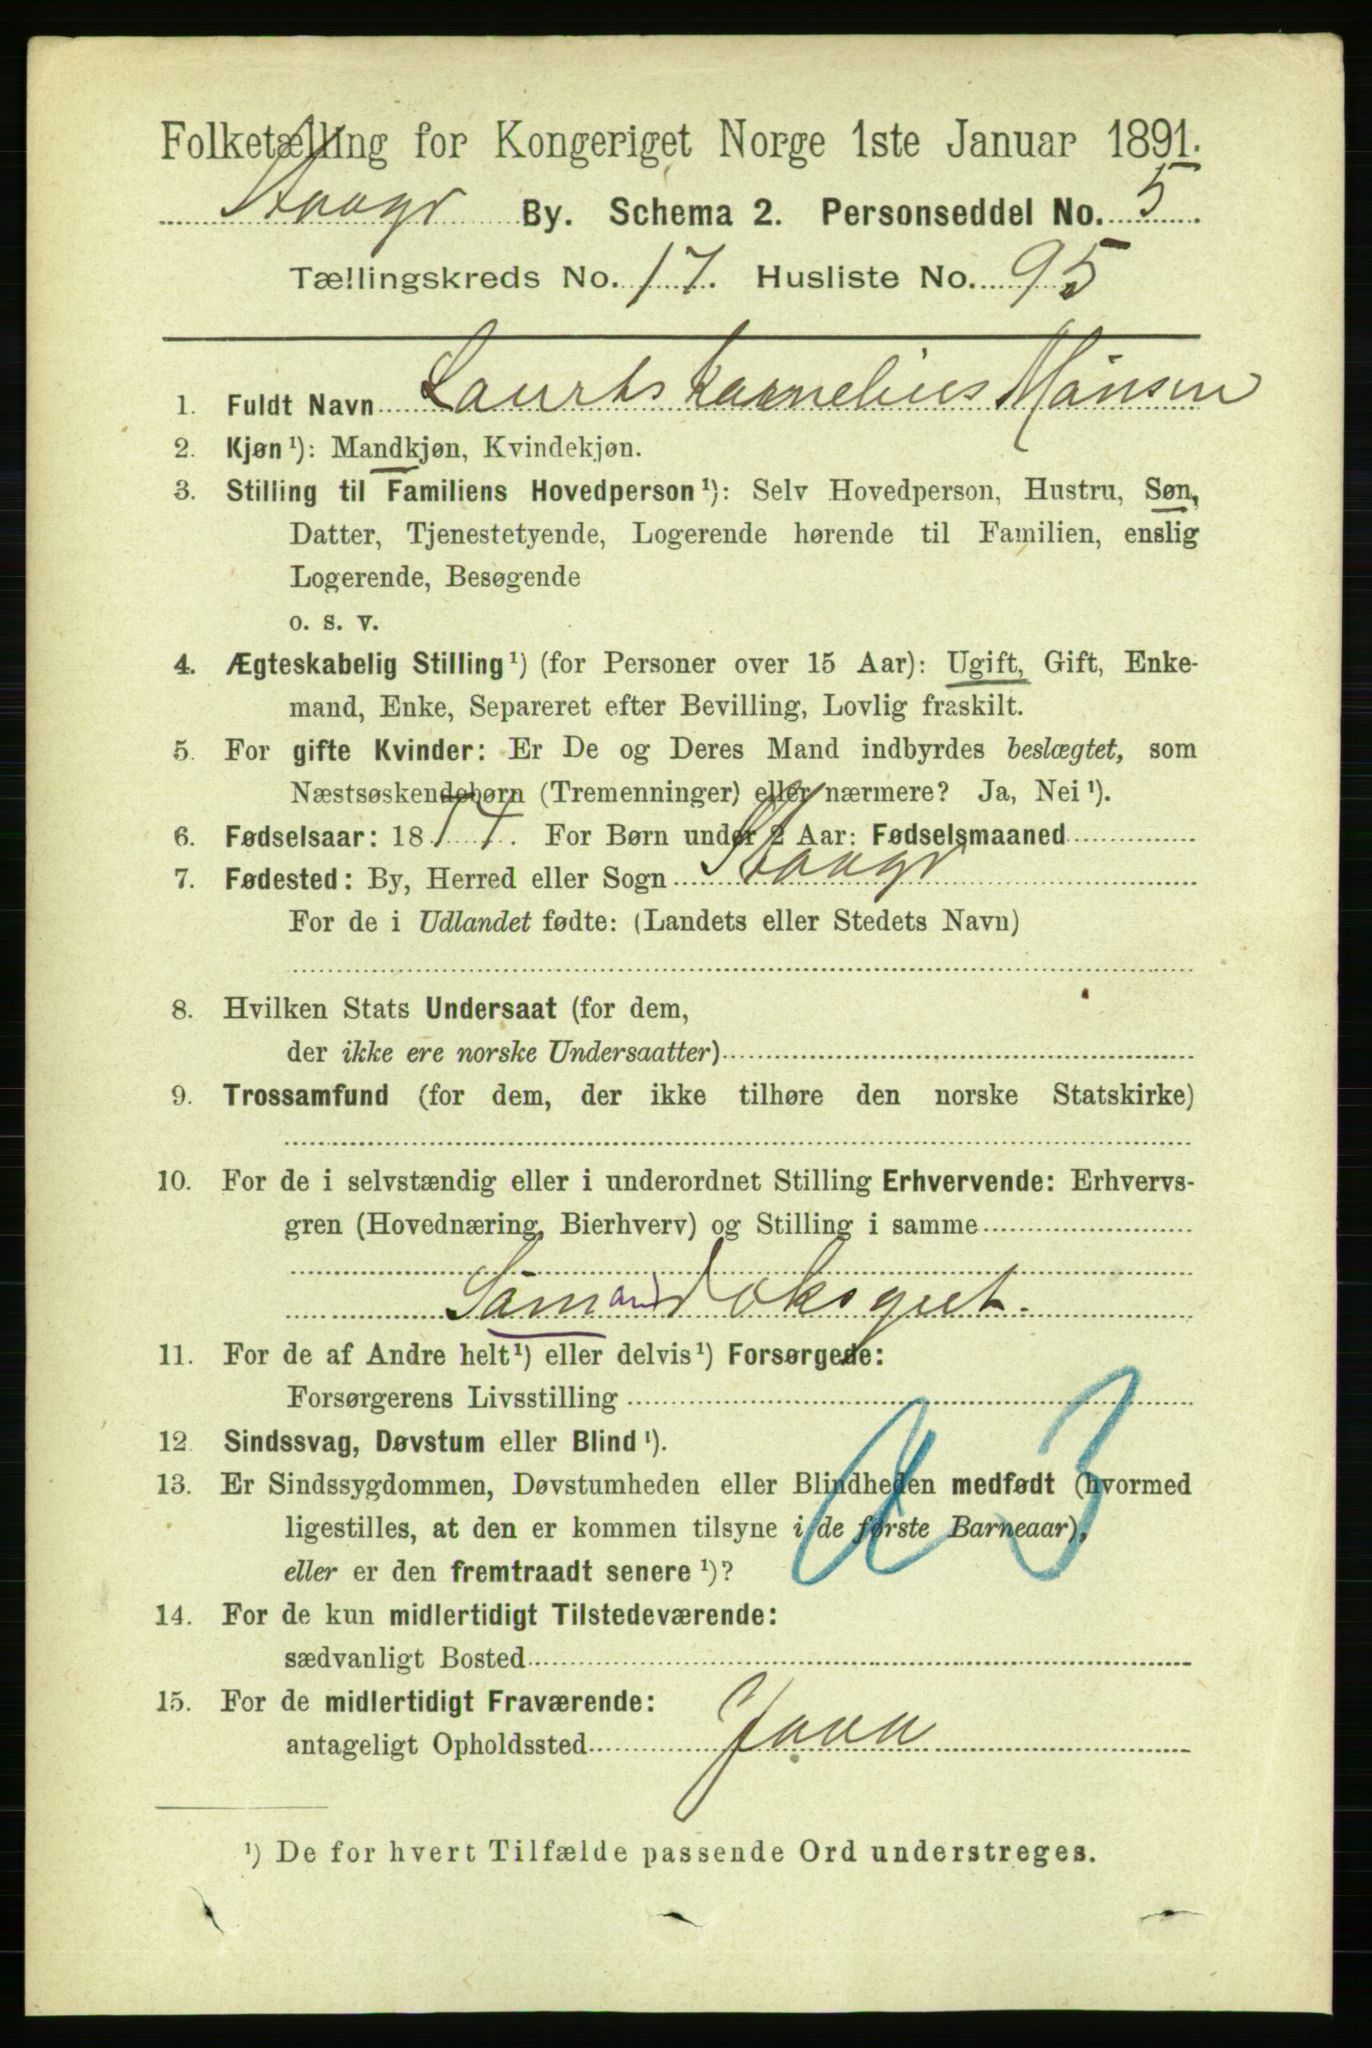 Folketælling for Kongeriget Norge 1ste Januar 1891.
By. Schema 2. Personseddel No. 5
Tællingskreds No. 17. Husliste No. 95
1. Fuldt Navn Laurits Karnelius Månsen
2. Kjøn¹): Mandkjøn, Kvindekjøn.
3. Stilling til Familiens Hovedperson¹): Selv Hovedperson, Hustru, Søn,
Datter, Tjenestetyende, Logerende hørende til Familien, enslig
Logerende, Besøgende
o. s. v.
4. Ægteskabelig Stilling¹) (for Personer over 15 Aar): Ugift, Gift, Enke-
mand, Enke, Separeret efter Bevilling, Lovlig fraskilt.
5. For gifte Kvinder: Er De og Deres Mand indbyrdes beslægtet, som
Næstsøskendebørn (Tremenninger) eller nærmere? Ja, Nei¹).
6. Fødselsaar: 18 For Børn under 2 Aar: Fødselsmaaned
7. Fødested: By, Herred eller Sogn
For de i Udlandet fødte: (Landets eller Stedets Navn)
8. Hvilken Stats Undersaat (for dem,
der ikke ere norske Undersaatter)
9. Trossamfund (for dem, der ikke tilhøre den norske Statskirke)
10. For de i selvstændig eller i underordnet Stilling Erhvervende: Erhvervs-
gren (Hovednæring, Bierhverv) og Stilling i samme
11. For de af Andre helt¹) eller delvis¹) Forsørgede:
Forsørgerens Livsstilling
12. Sindssvag, Døvstum eller Blind¹).
13. Er Sindssygdommen, Døvstumheden eller Blindheden medfødt (hvormed
ligestilles, at den er kommen tilsyne i de første Barneaar),
eller er den fremtraadt senere¹)?
14. For de kun midlertidigt Tilstedeværende:
sædvanligt Bosted
15. For de midlertidigt Fraværende:
antageligt Opholdssted Java
¹) De for hvert Tilfælde passende Ord understreges.